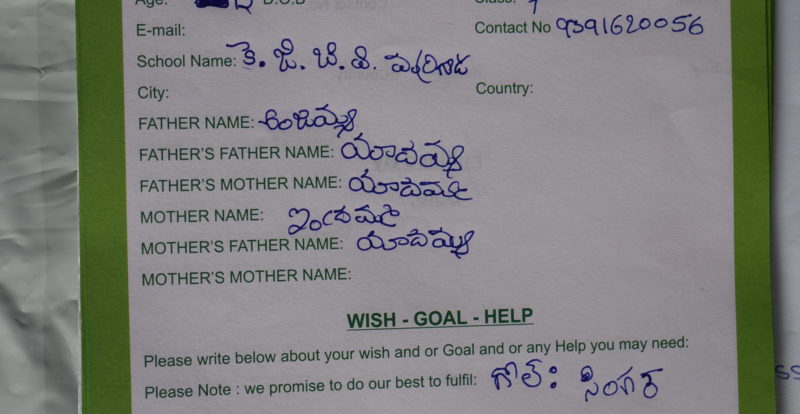 Age: D.O.B Class: 7
E-mail: Contact No 9391620056
School Name: కె. జి. బి. వి.
City: Country:
FATHER NAME: అంజియ్య
FATHER'S FATHER NAME: యాదయ్య
FATHER'S MOTHER NAME: యాదమ్మ
MOTHER NAME: ఇందమ్మ
MOTHER'S FATHER NAME: యాదియ్య
MOTHER'S MOTHER NAME:
WISH - GOAL - HELP
Please write below about your wish and or Goal and or any Help you may need:
Please Note : we promise to do our best to fulfil: గోల్: సింగర్